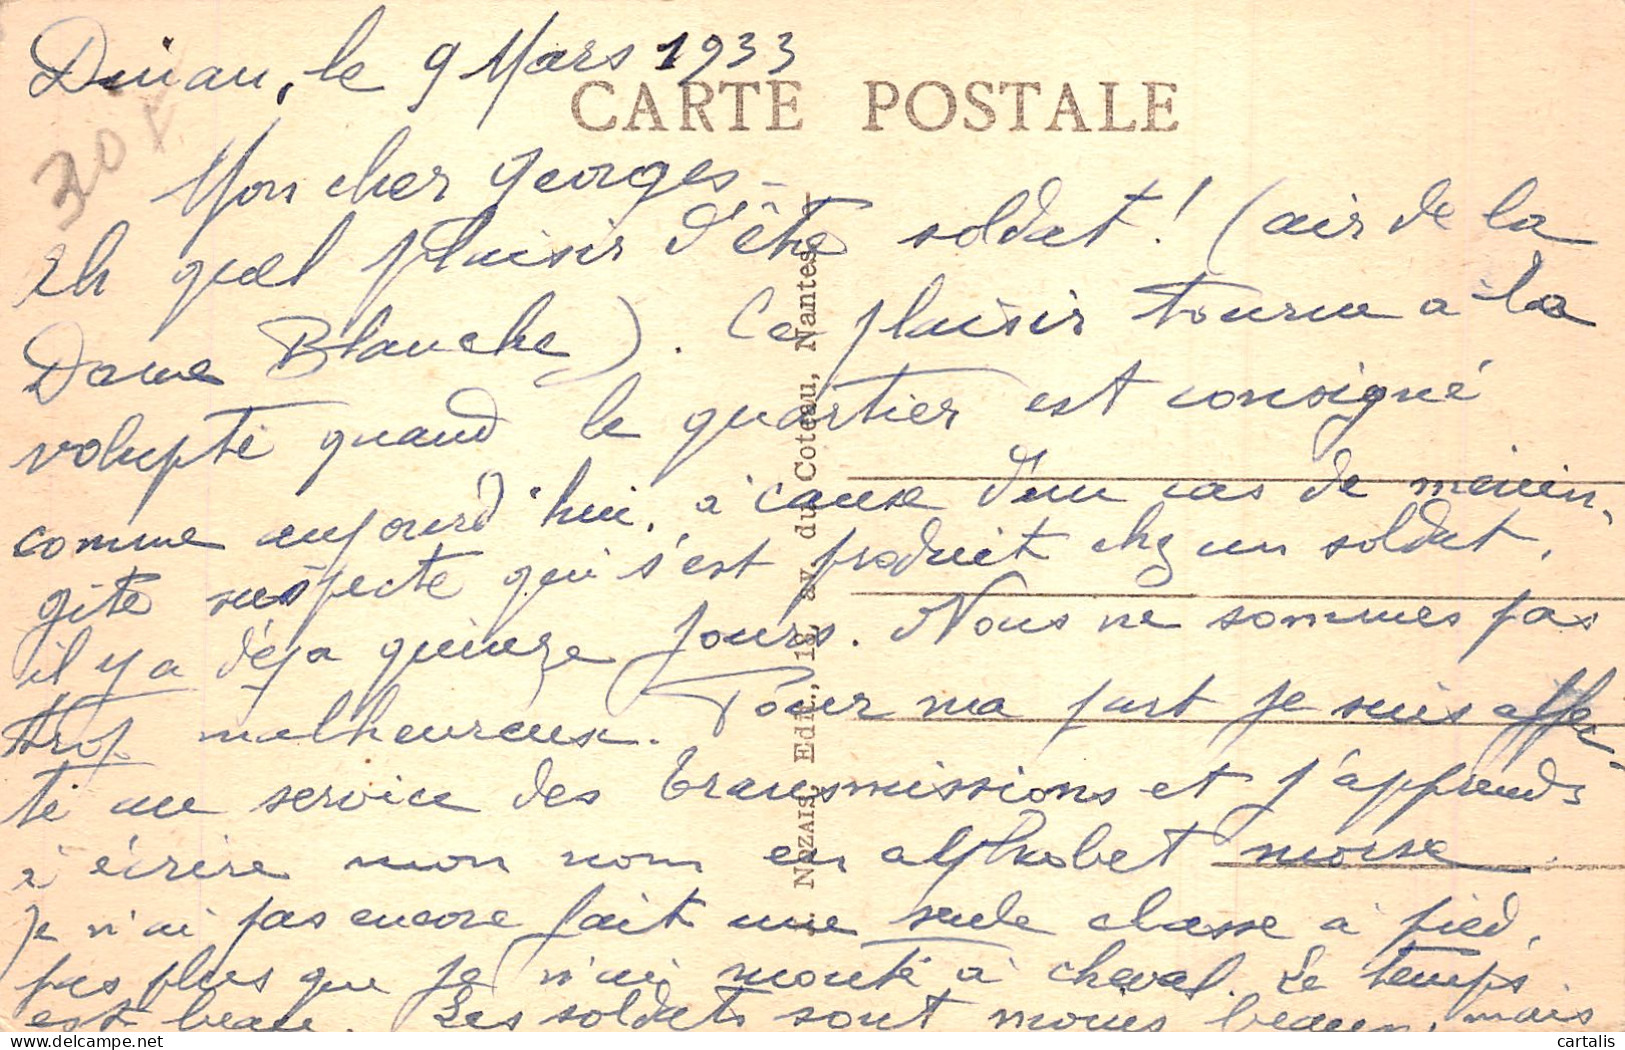 Dinan, le 9 Mars 1933
CARTE POSTALE
30F
Mon cher Georges
Eh quel plaisir d'être soldat ! (air de la
Dame Blanche). Ce plaisir tourne à la
volupté quand le quartier est consigné
comme aujourd'hui, à cause d'un cas de ménin,
gite suspecte qui s'est produit chez un soldat,
il y a déjà quinze jours. Nous ne sommes pas
trop malheureux. Pour ma part je suis affec-
té au service des transmissions et j'apprends
à écrire mon nom en alphabet morse.
Je n'ai pas encore fait une seule classe à pied,
pas plus que je n'ai monté à cheval. Le temps
est beau. Les soldats sont moins beaux, mais
Nozais, Edit., 18, av. du Coteau, Nantes
delcampe.net
cartalis